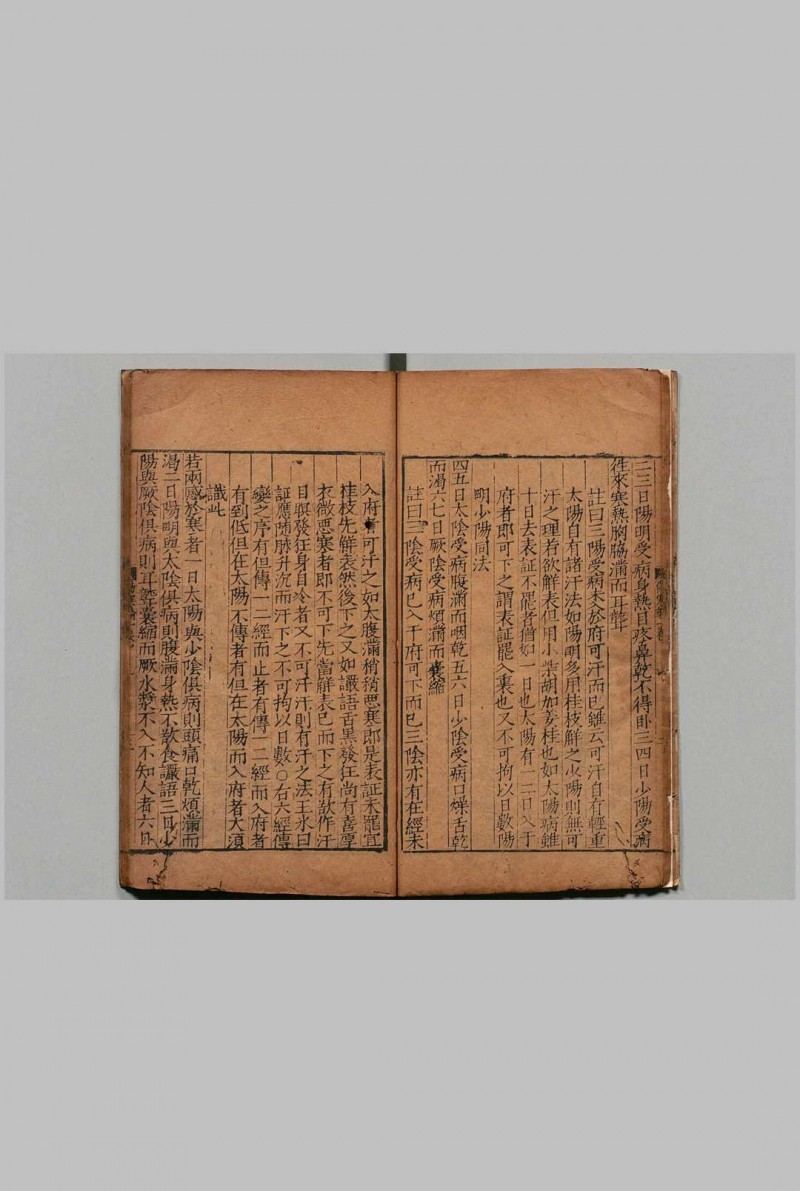 二三日陽明受病身熱目疼鼻乾不得卧三四日少陽受病
徃來寒熱胸脇滿而耳聾
註曰三陽受病未入於府可汗而已雖云可汗自有輕重
太陽自有諸汗法如陽明多用桂枝解之少陽則無可
汗之理若欲解表但用小柴胡加姜桂也如太陽病雖
十日去表証不罷者猶如一日也太陽有一二日入于
府者即可下之謂表証罷入裏也又不可拘以日數陽
明少陽同法
四五日太陰受病腹滿而咽乾五六日少陰受病口燥舌乾
而渴六七日厥陰受病煩滿而囊縮
註曰三陰受病已入于府可下而已三陰亦有在經未
入府者可汗之如太腹滿稍稍悪寒即是表証未罷宜
桂枝先解表然後下之又如讝語舌黒發狂尚有喜厚
衣微悪寒者即不可下先當解表已而下之有欲作汗
目瞑發狂身自冷者又不可汗汗則有汗之法王氷曰
証應随脉升沉而汗下之不可拘以日數〇右六經傳
變之序有但傳一二經而止者有傳一二經而入府者
有到低但在太陽不傳者有但在太陽而入府者大湏
識此
若兩感於寒者一日太陽與少陰俱病則頭痛口乾煩滿而
渴二日陽明與太陰俱病則腹滿身熱不欲食讝語三日少
陽與厥陰俱病則耳聾囊縮而厥水漿不入不知人者六日